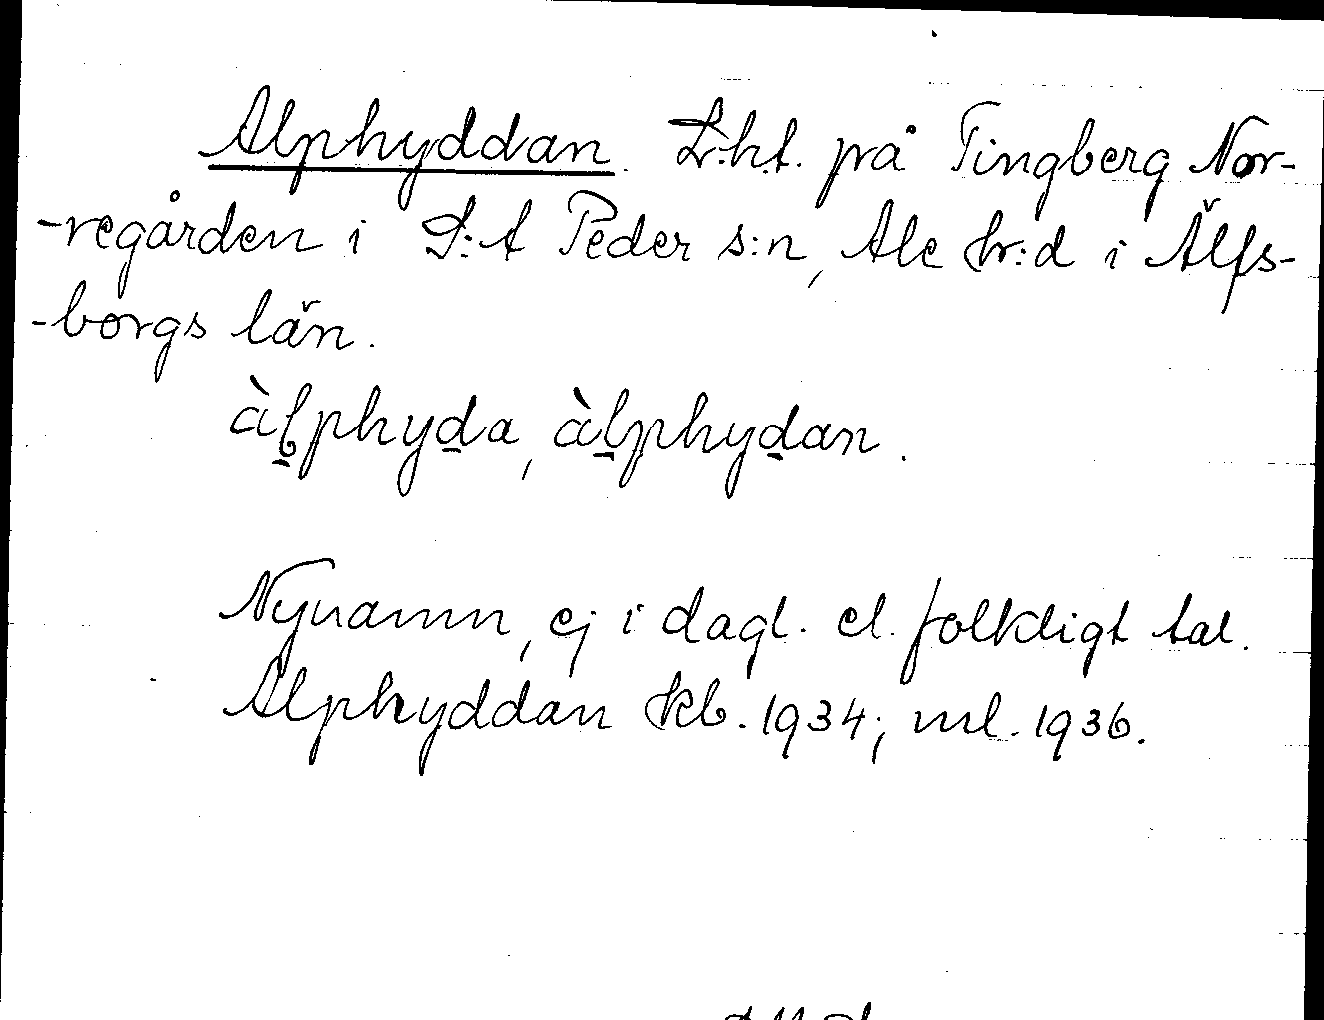 Alphyddan. L:h.t. på Tingberg Nor-
-regården i S:t Peder s:n, Ale hr:d i Älfs-
-borgs län.
àlphyda, àlphydan.
Nynamn, ej i dagl. el. folkligt tal.
Alphyddan kb. 1934; ml. 1936.